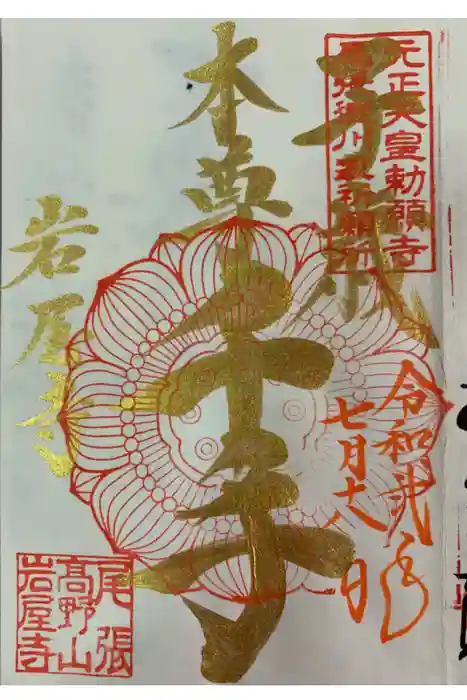 元正天皇勅願寺
尾張徳川家祈願所
子歳
令和弐年
七月十八日
本尊
千手
岩屋寺
尾張
髙野山
岩屋寺